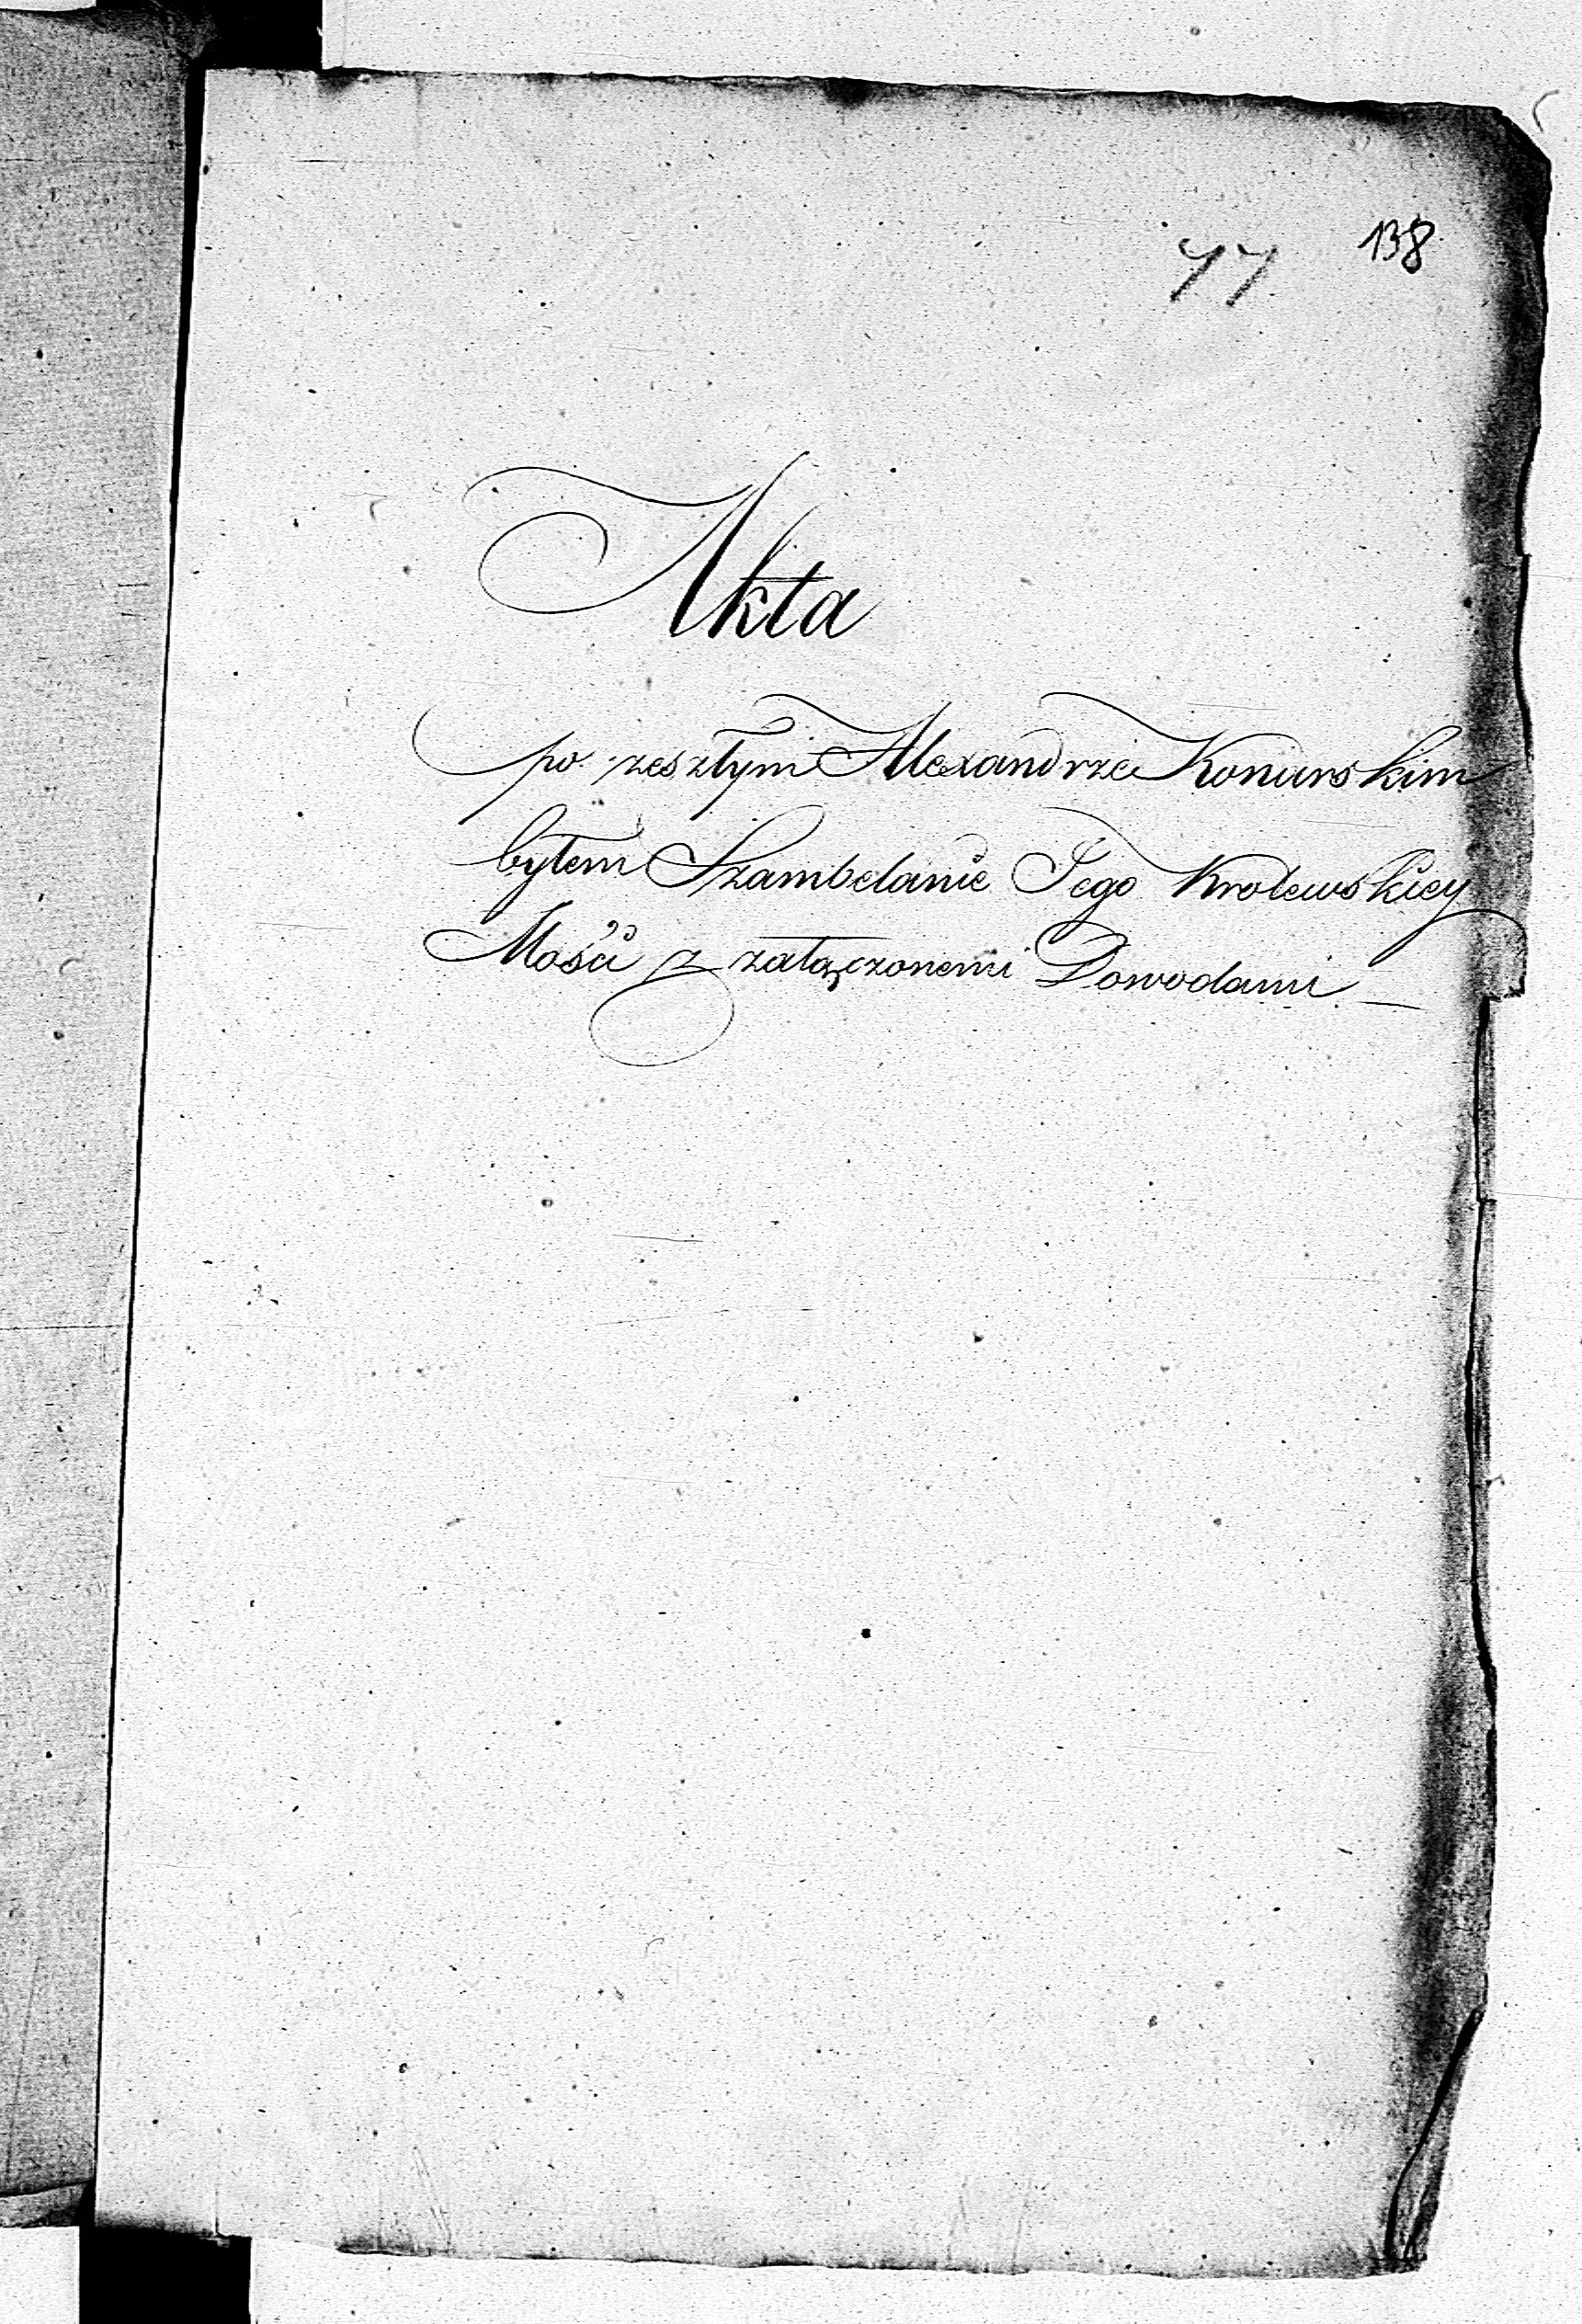 77 138
Akta
po zeszłym Alexandrze Konarskim
byłem Szambelanie Jego Krolewskiey
Mości z załączonemi Dowodami